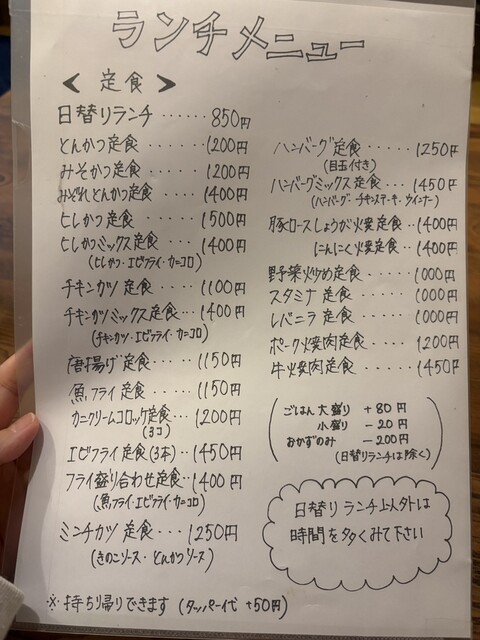 ランチメニュー
< 定食 >
日替りランチ ······ 850円
とんかつ定食 ····· 1200円
みそかつ定食 ····· 1200円
みぞれとんかつ定食 ···· 1400円
ヒレかつ 定食 ····· 1500円
ヒレかつミックス定食 ··· 1400円
(ヒレかつ・エビフライ・カニコロ)
チキンカツ 定食 ···· 1100円
チキンカツミックス定食 ··· 1400円
(チキンカツ・エビフライ・カニコロ)
唐揚げ定食 ····· 1150円
魚フライ 定食 ····· 1150円
カニクリームコロッケ定食 ··· 1200円
(3コ)
エビフライ定食(3本) ·· 1450円
フライ盛り合わせ定食 ·· 1400円
(魚フライ・エビフライ・カニコロ)
ミンチカツ 定食 ··· 1250円
(きのこソース・とんかつソース)
ハンバーグ定食 ···· 1250円
(目玉付き)
ハンバーグミックス定食 ··· 1450円
(ハンバーグ・チキンステーキ・ウインナー)
豚ロースしょうが焼定食 ·· 1400円
にんにく焼定食 ·· 1400円
野菜炒め定食 ····· 1000円
スタミナ 定食 ····· 1000円
レバニラ 定食 ····· 1000円
ポーク焼肉定食 ···· 1200円
牛焼肉定食 ····· 1450円
ごはん 大盛り + 80円
小盛り - 20円
おかずのみ - 200円
(日替りランチは除く)
日替りランチ以外は
時間を多くみて下さい
※ 持ち帰りできます (タッパー代 +50円)